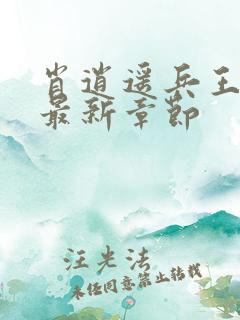 肖逍遥兵王
最新章节
汪光法
未经同意禁止转载